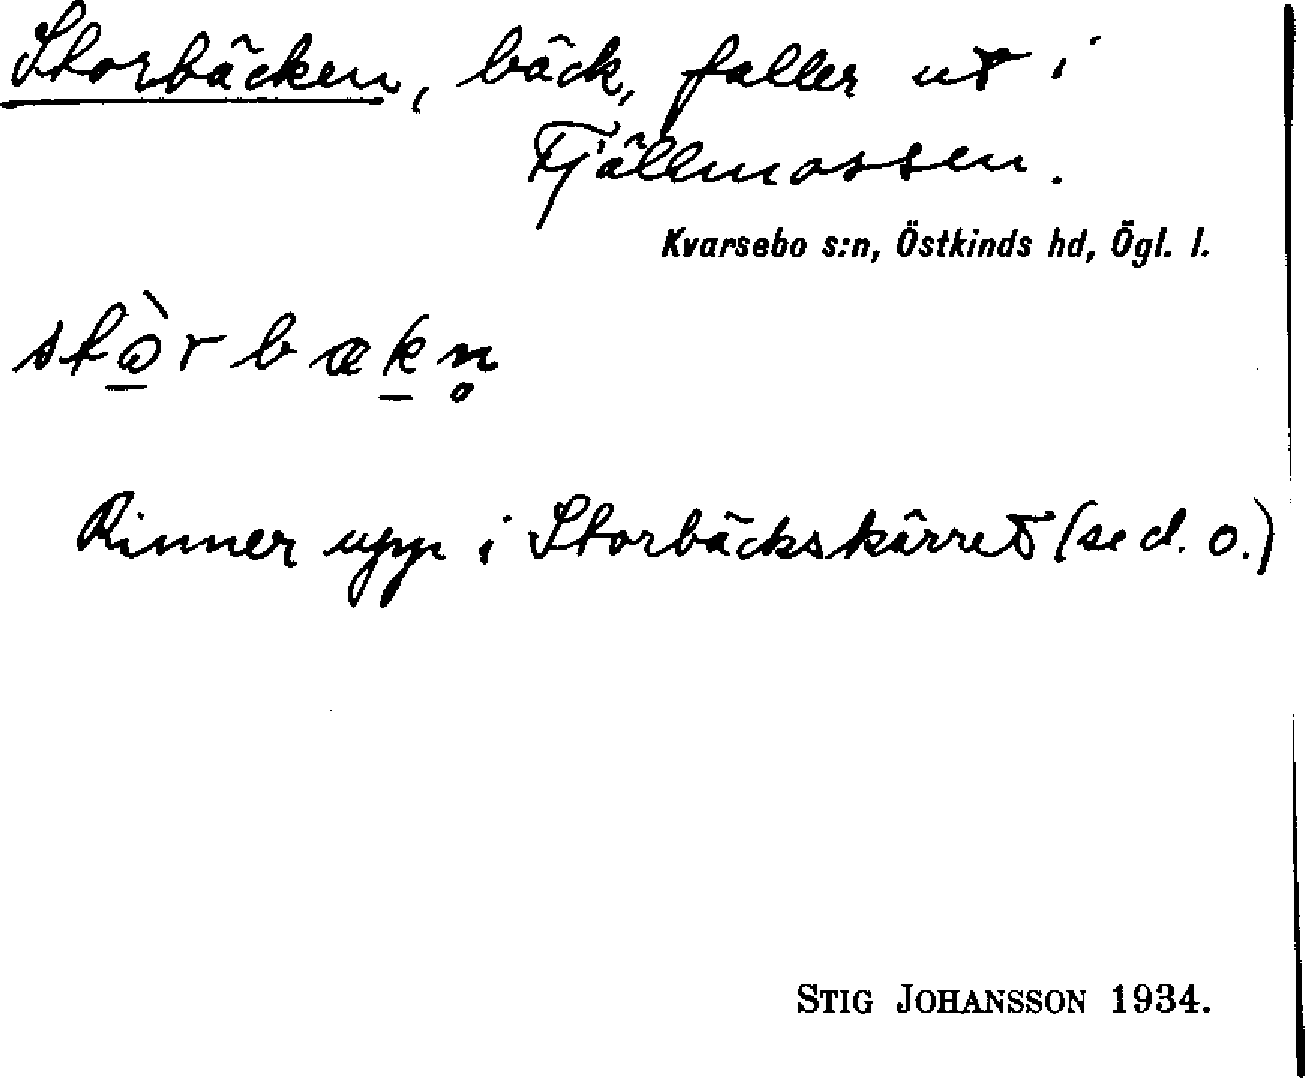 Storbäcken, bäck, faller ut i
Fjällmossen.
Kvarsebo s:n, Östkinds hd, Ögl. l.
stòrbækn̥
Rinner upp i Storbäckskärret (se d. o.)
STIG JOHANSSON 1934.